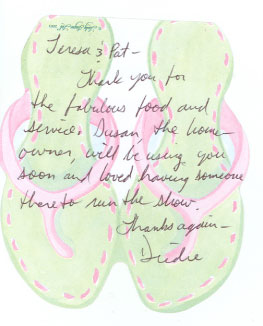 Teresa & Pat -
Thank you for
the fabulous food and
service. Susan, the home-
owner, will be using you
soon and loved having someone
there to run the show.
Thanks again -
Diedre